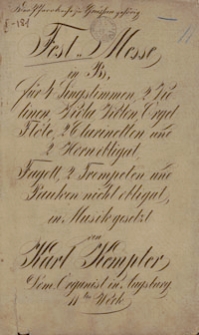 Der Pfarrkirche zu gehörig
Fest-Messe
in B,
für 4 Singstimmen, 2 Vio
linen, Viola, Violon, Orgel
Flöte, 2 Clarinetten und
2 Horn obligat,
Fagott, 2 Trompeten und
Pauken nicht obligat,
in Musik gesetzt
von
Karl Kempter,
Dom Organist in Augsburg
11tes Werk